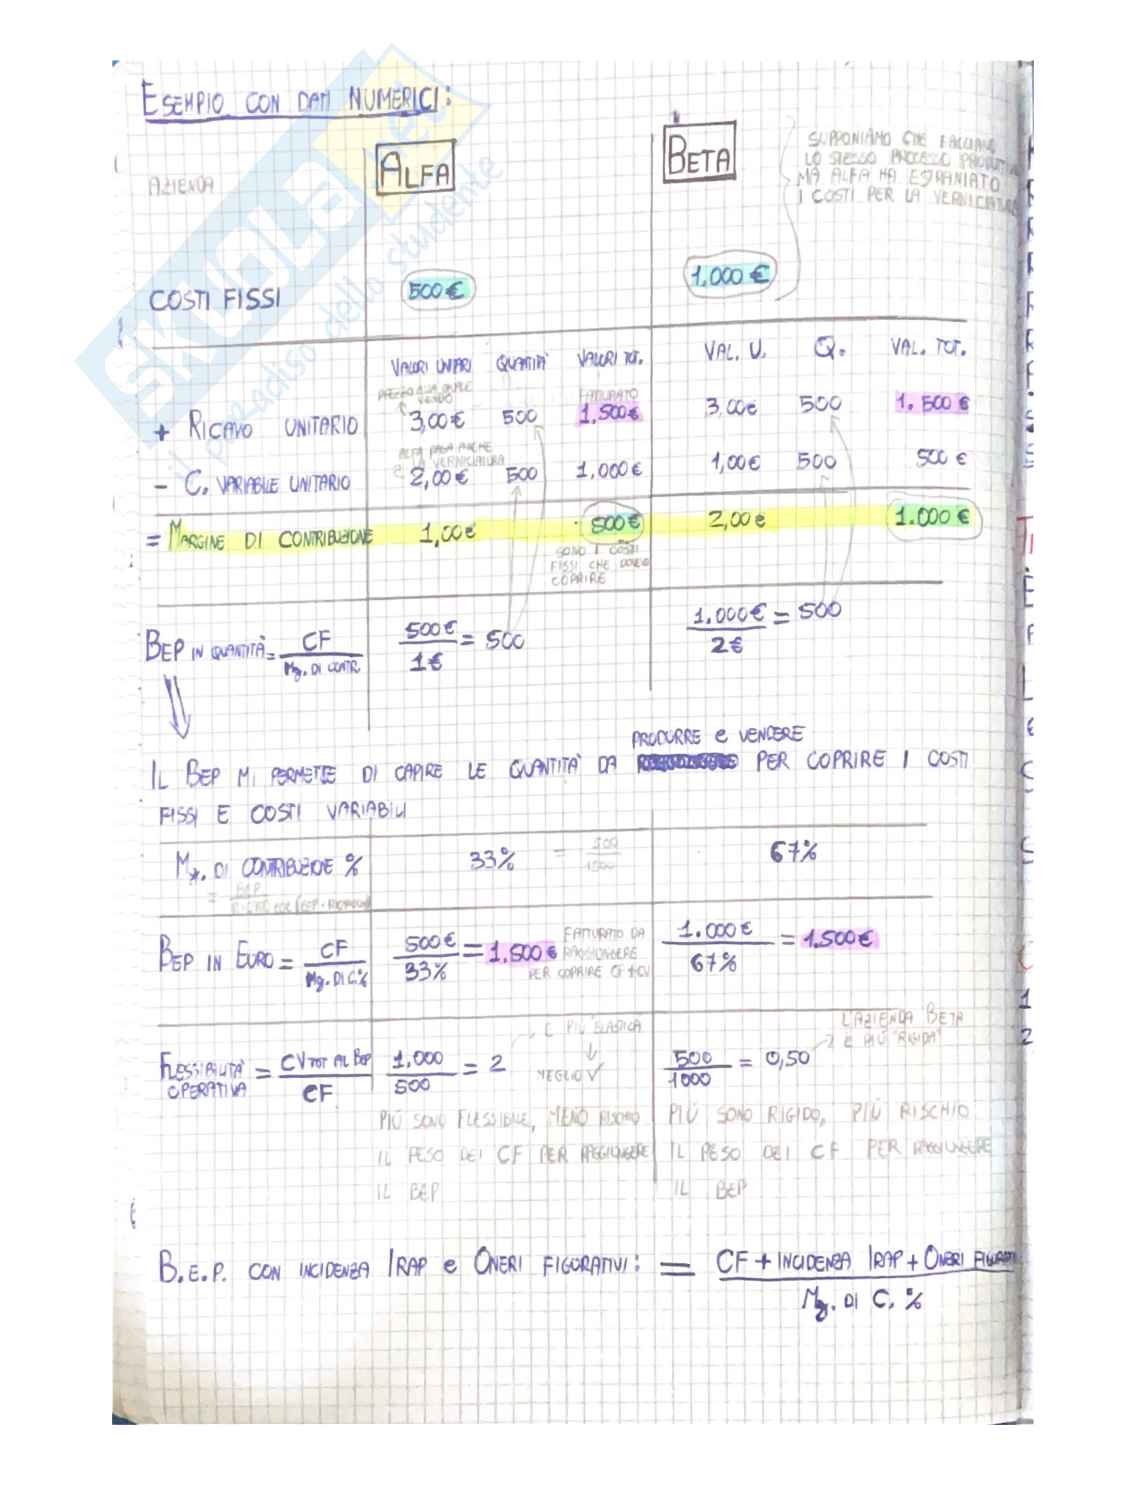 ESEMPIO CON DATI NUMERICI:
AZIENDA
ALFA
BETA
SUPPONIAMO CHE FACCIANO
LO STESSO PROCESSO PRODUTTIVO
MA ALFA HA ESTRANIATO
I COSTI PER LA VERNICIATURA
COSTI FISSI 500 € 1.000 €
VALORI UNITARI QUANTITÀ VALORI TOT. VAL. U. Q. VAL. TOT.
PREZZO ALLA QUALE
VENDO
FATTURATO
+ RICAVO UNITARIO 3,00 € 500 1.500 € 3,00€ 500 1.500 €
ALFA PAGA ANCHE
LA VERNICIATURA
- C. VARIABILE UNITARIO 2,00 € 500 1.000 € 1,00 € 500 500 €
= MARGINE DI CONTRIBUZIONE 1,00 € 500 € 2,00 € 1.000 €
SONO I COSTI
FISSI CHE DEVO
COPRIRE
BEP IN QUANTITÀ = CF / Mg. DI CONTR. 500 € / 1 € = 500 1.000 € / 2 € = 500
PRODURRE e VENDERE
IL BEP MI PERMETTE DI CAPIRE LE QUANTITÀ DA PER COPRIRE I COSTI
FISSI E COSTI VARIABILI
Mg. DI CONTRIBUZIONE % 33% = 500 / 1500 67%
= BEP
BEP IN EURO = CF / Mg. DI C.% 500 € / 33% = 1.500 € 1.000 € / 67% = 1.500 €
FATTURATO DA
RAGGIUNGERE
PER COPRIRE CF + CV
FLESSIBILITÀ OPERATIVA = CV TOT AL BEP / CF 1.000 / 500 = 2 500 / 1000 = 0,50
È PIÙ ELASTICA
MEGLIO √
L'AZIENDA BETA
È PIÙ "RIGIDA"
PIÙ SONO FLESSIBILE, MENO RISCHIO
IL PESO DEI CF PER RAGGIUNGERE
IL BEP
PIÙ SONO RIGIDO, PIÙ RISCHIO
IL PESO DEI CF PER RAGGIUNGERE
IL BEP
B.E.P. CON INCIDENZA IRAP e ONERI FIGURATIVI: = CF + INCIDENZA IRAP + ONERI FIGURATIVI / Mg. DI C. %
SKUOLA.net
il paradiso dello studente